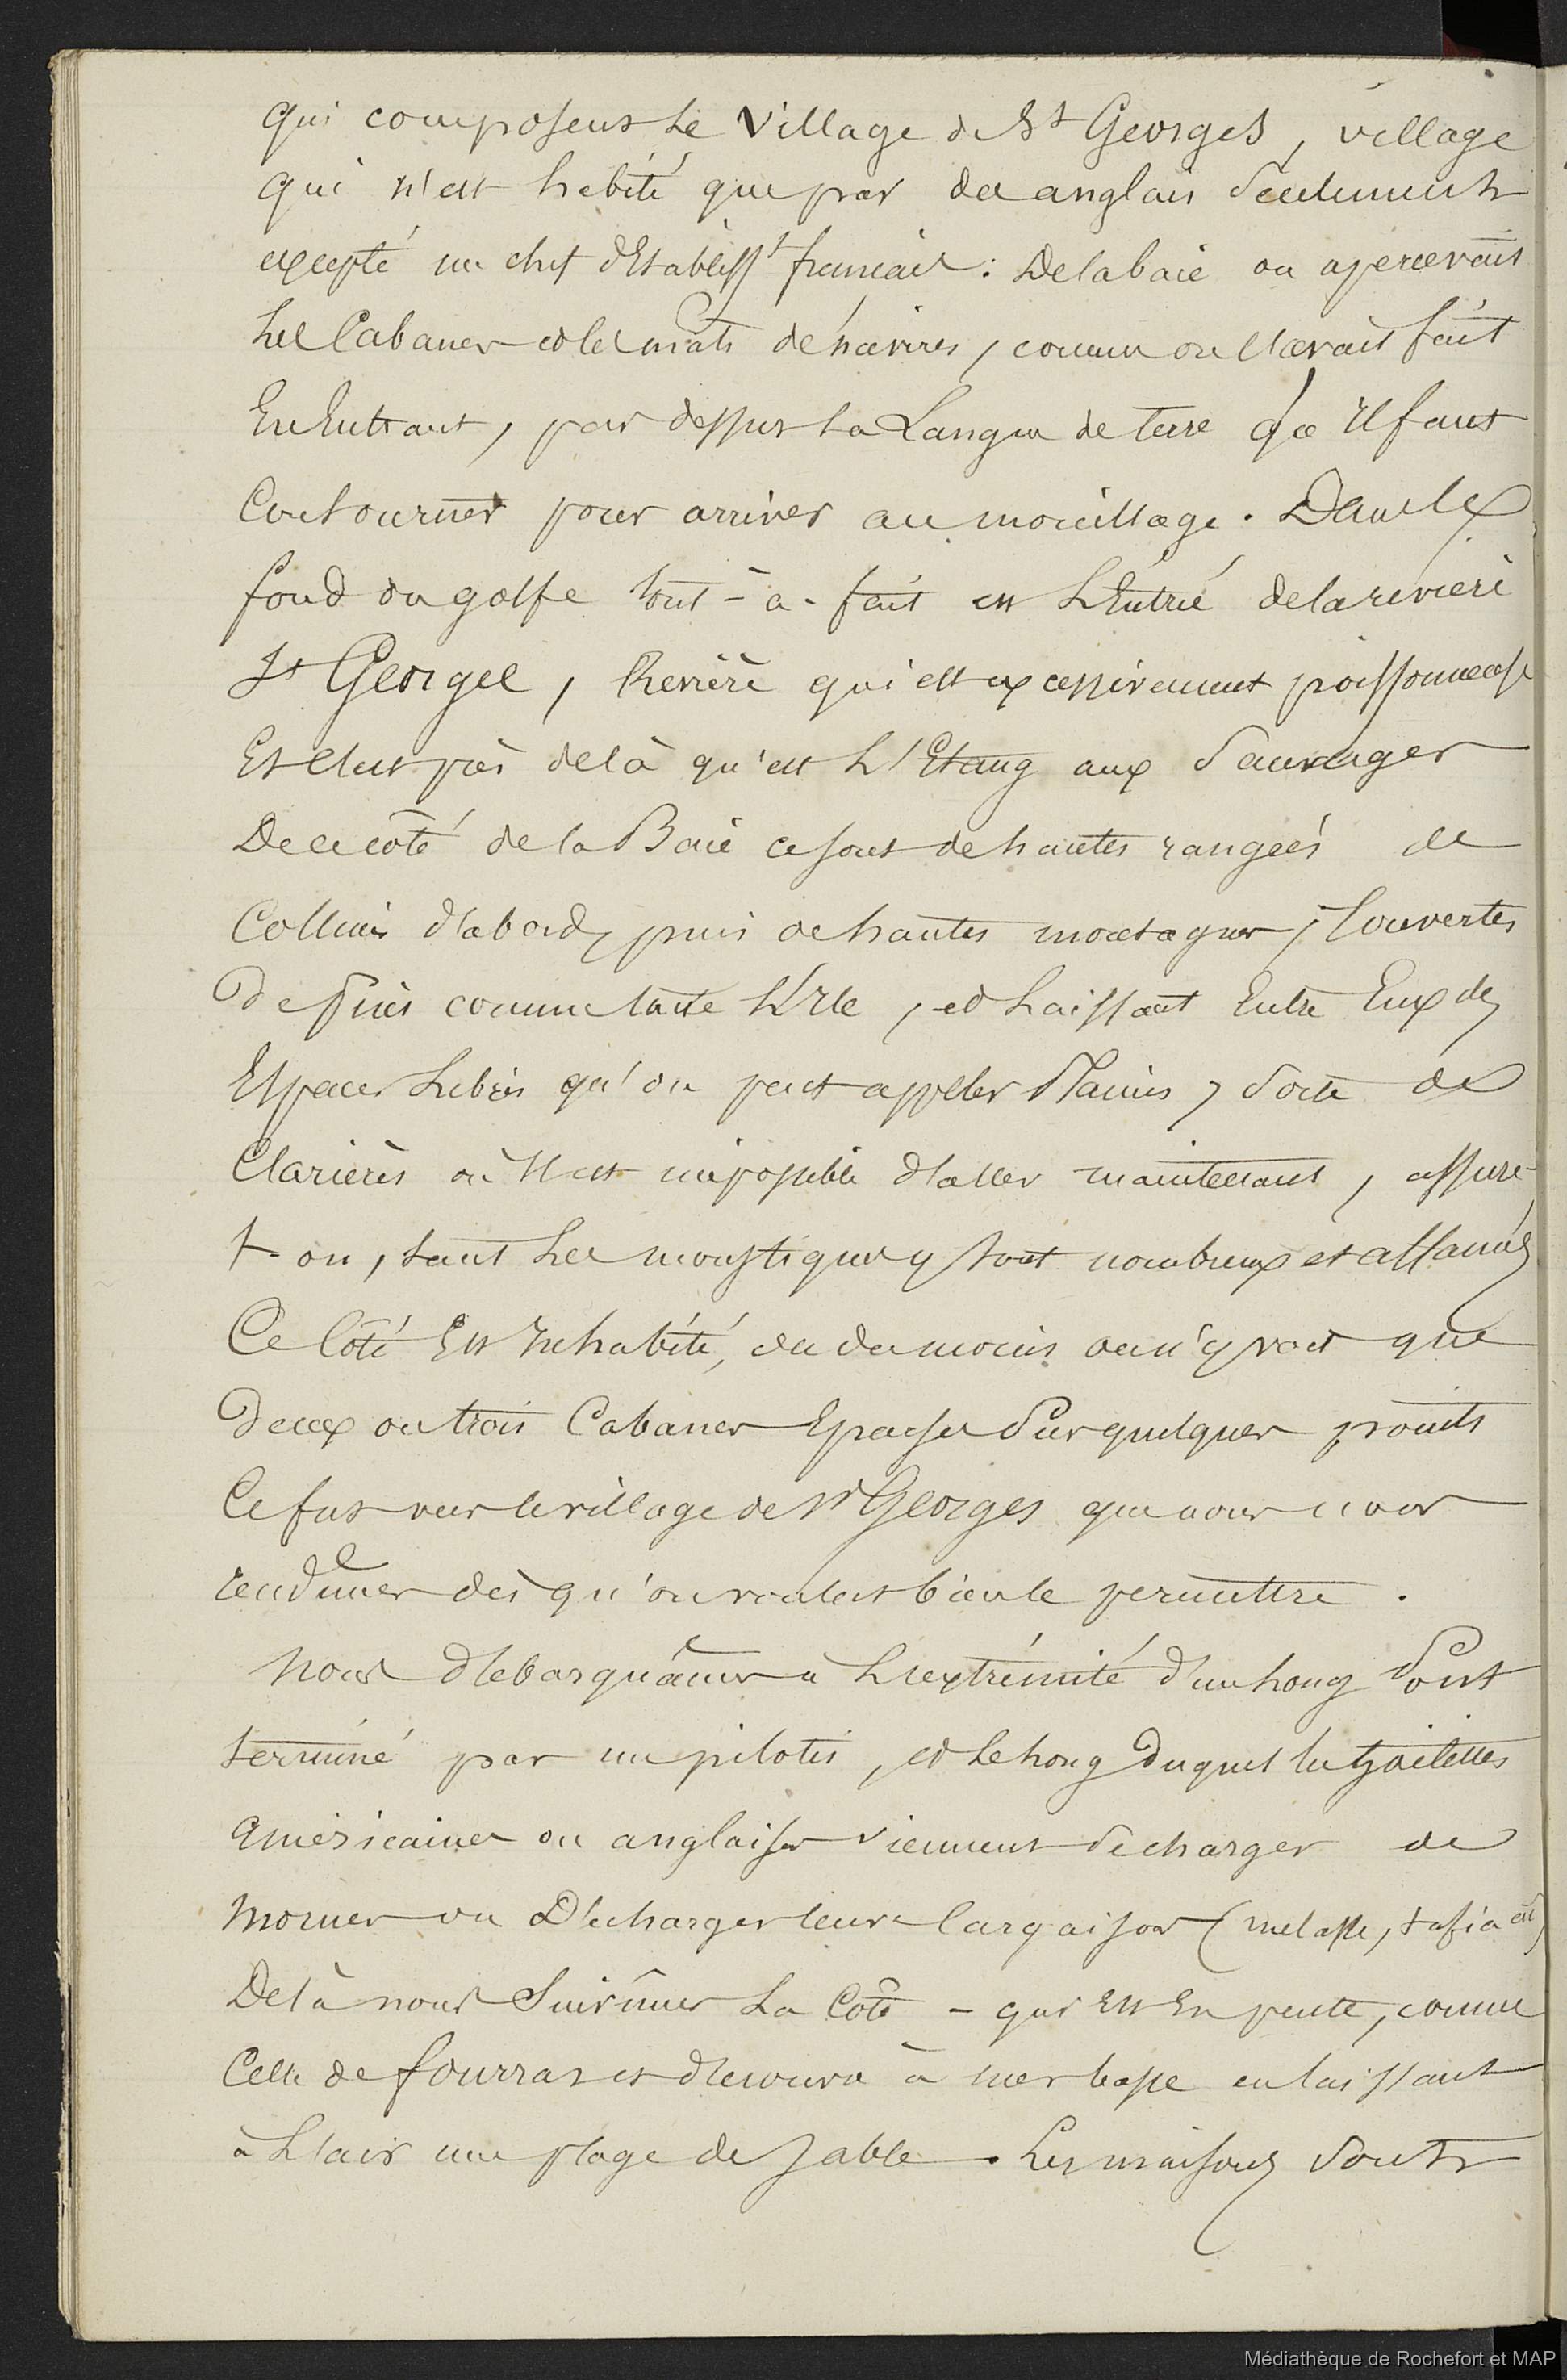 qui composent le village de St Georges, village
qui n'est habité que par des anglais seulement
excepté un chef d'Etablisst français : De la baie on apercevait
les Cabanes et les mats de navires, comme on l'avait fait
En Entrant, par dessus la Langue de terre qu'Il faut
Contourner pour arriver au mouillage. Dans le
fond du golfe tout-à-fait est L'Entrée de la rivière
St Georges, Rivière qui est excessivement poissonneuse
Et c'est près de là qu'est L'Etang aux Sauvages
De ce côté de la Baie ce sont de hautes rangées de
Collines d'abord, puis de hautes montagnes, Couvertes
De pins comme toute L'Ile, et Laissant Entre Eux des
Espaces Libres qu'on peut appeler Plaines, Sorte de
Clarières où Il est impossible d'aller maintenant, assure-
t-on, tant Les moustiques y sont nombreux et affamés
Ce Côté Est Inhabité, ou du moins on n'y voit que
Deux ou trois Cabanes Eparses Sur quelques points
Ce fut vers le village de St Georges que nous nous
rendîmes dès qu'on voulut bien le permettre.
Nous débarquâmes à L'extrémité d'un Long Pont
terminé par un pilotis, et Le Long Duquel les goélettes
américaines ou anglaises viennent se charger de
Morues ou Décharger leurs Cargaison (melasse, tafia etc)
De là nous Suivîmes La Côte - qui Est En pente, comme
Celle de fourras et découvre à mer basse en laissant
à L'air une plage de Sable. Les maisons Sont
Médiathèque de Rochefort et MAP